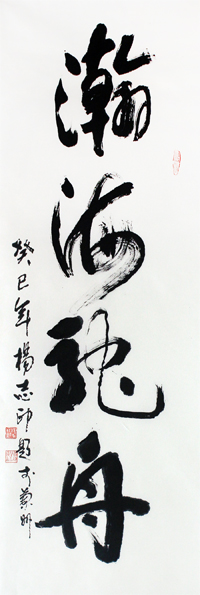 瀚海駝舟
癸巳年楊志印題於蘭州